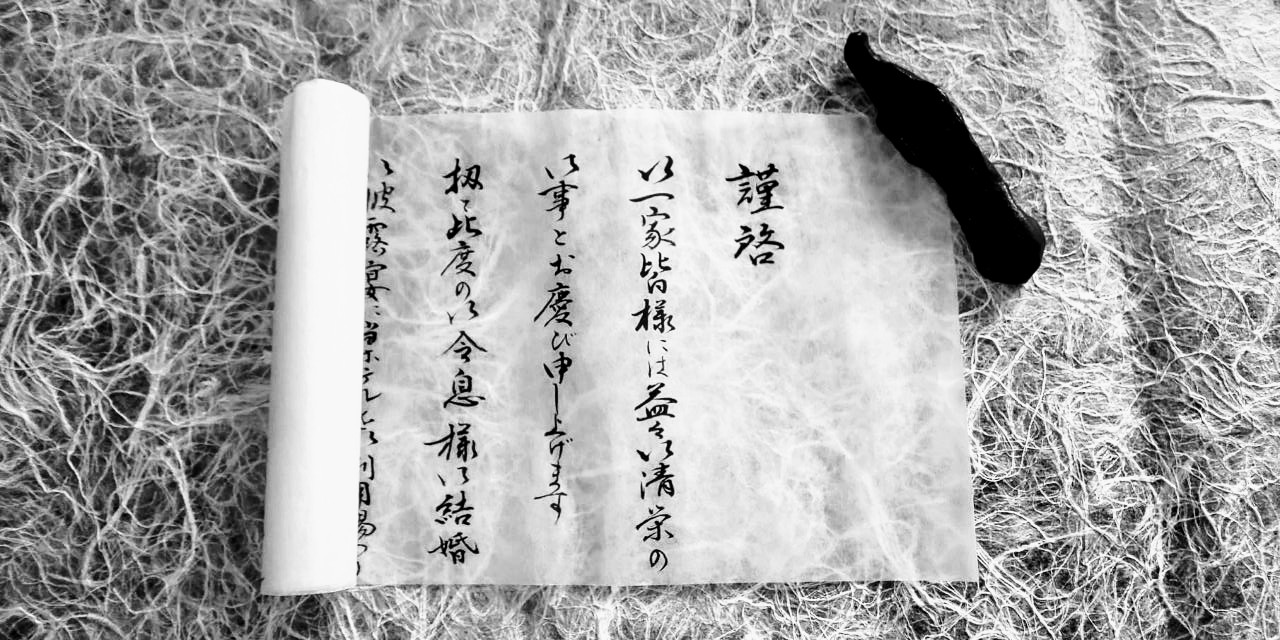 謹啓
御一家皆様には益々御清栄の
御事とお慶び申し上げます
扨て此度の御令息様御結婚
御披露宴に当ホテルを御利用賜